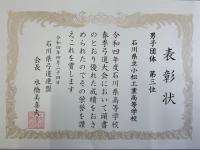 表彰状
男子団体 第三位
石川県立小松工業高等学校
令和四年度石川県高等学校
春季弓道大会において頭書
のとおり優れた成績をおさ
められたのでその栄誉を讃
えこれを賞します
令和四年四月二十四日
石川県弓道連盟
会長 水橋美喜夫